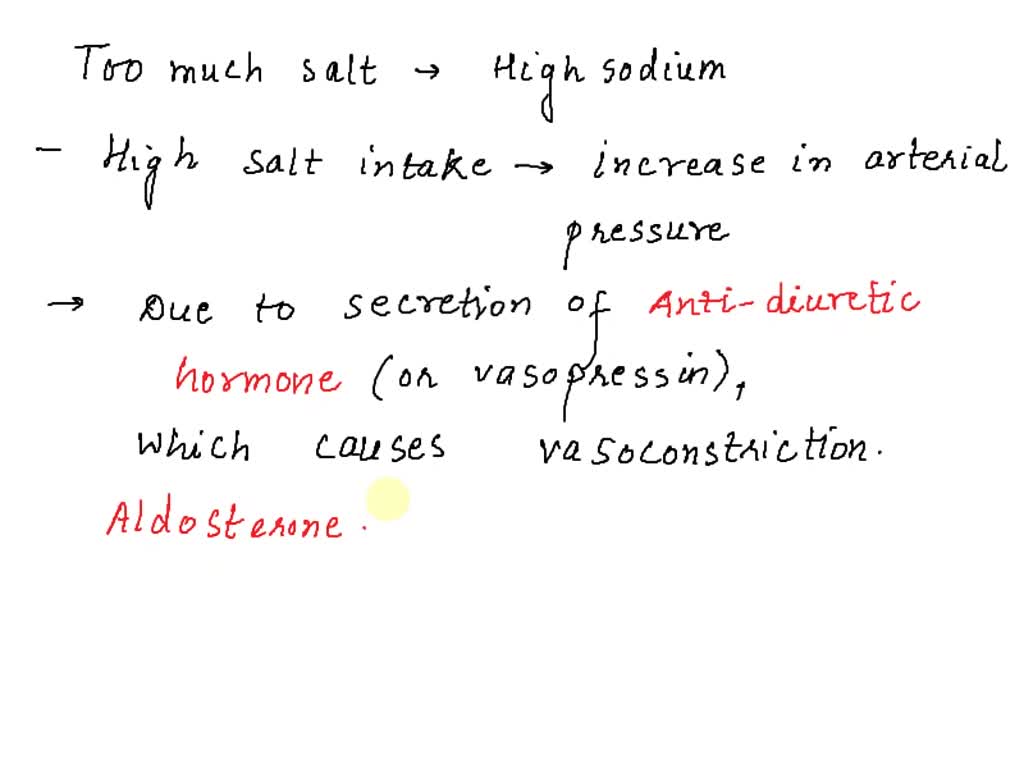 Too much salt → High sodium
- High salt intake → increase in arterial
pressure
→ Due to secretion of Anti-diuretic
hormone (or vasopressin),
which causes vasoconstriction.
Aldosterone.